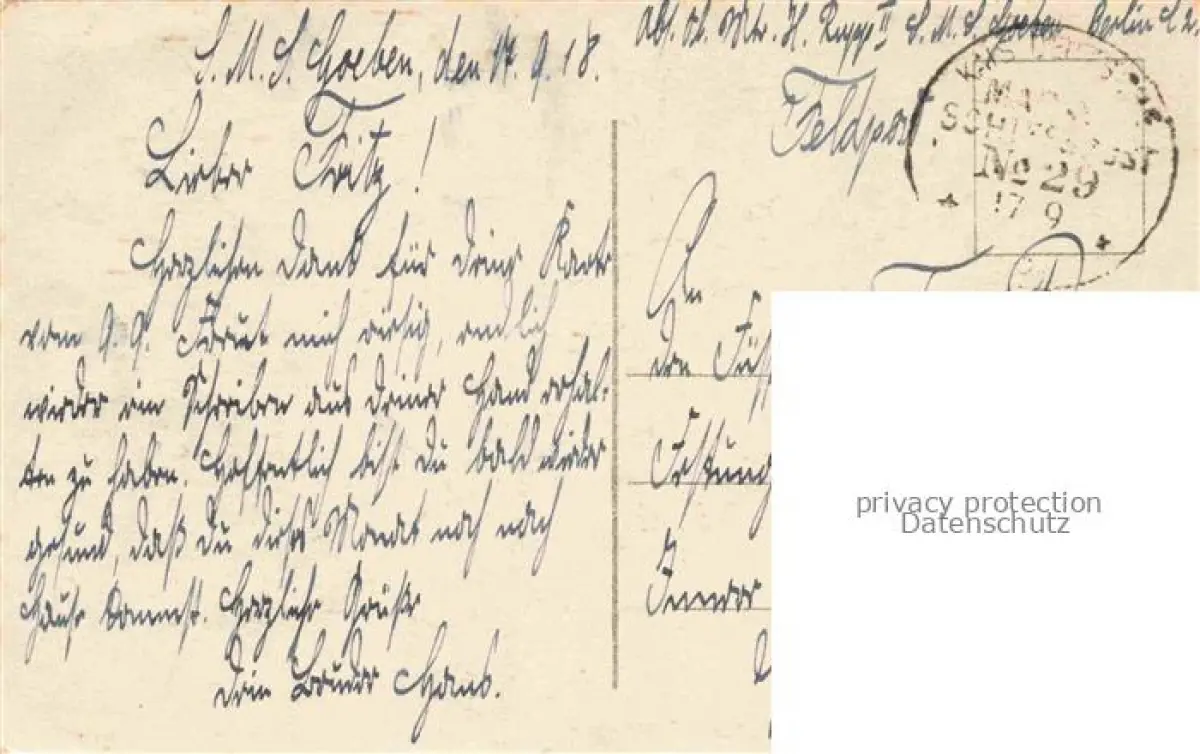 S. M. S. Goeben, den 17. 9. 18.
Lieber Fritz!
Herzlichen Dank für Deine Karte
vom 9. 9. Freut mich riesig, endlich
wieder ein Schreiben aus Deiner Hand erhal-
ten zu haben. Hoffentlich bist Du bald wieder
gesund, daß Du dieses Monat noch nach
Hause kommst. Herzliche Grüße
Dein Bruder Hans.
Abs. Ob. Mtr. H. Rupp II S. M. S. Goeben Berlin C. 2.
Feldpost.
MARINE
SCHIFFSPOST
No 29
17 9
An
den
Festung
privacy protection
Datenschutz